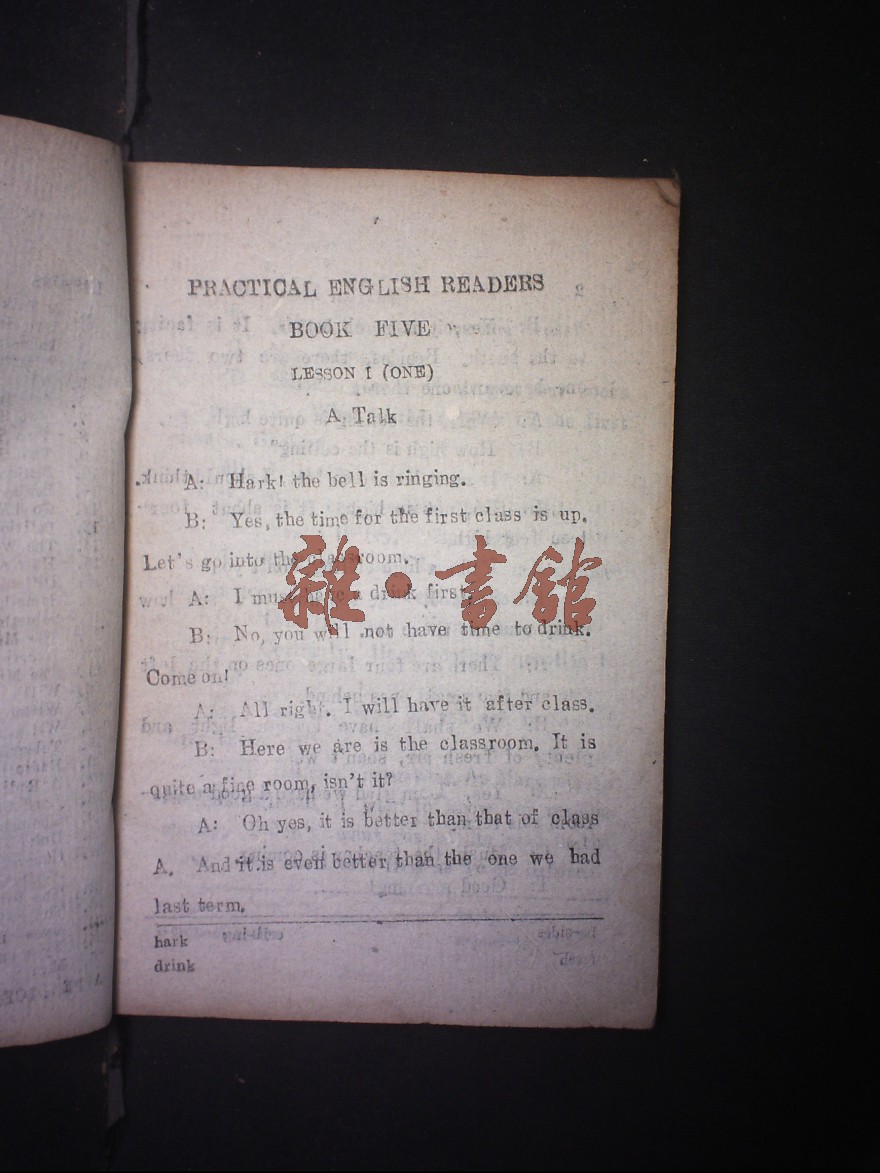 PRACTICAL ENGLISH READERS
BOOK FIVE
LESSON I (ONE)
A Talk
A: Hark! the bell is ringing.
B: Yes, the time for the first class is up.
Let's go into the classroom.
A: I must have a drink first.
B: No, you will not have time to drink.
Come on!
A: All right. I will have it after class.
B: Here we are is the classroom. It is
quite a fine room, isn't it?
A: Oh yes, it is better than that of class
A. And it is even better than the one we had
last term.
hark
drink
雜·書館